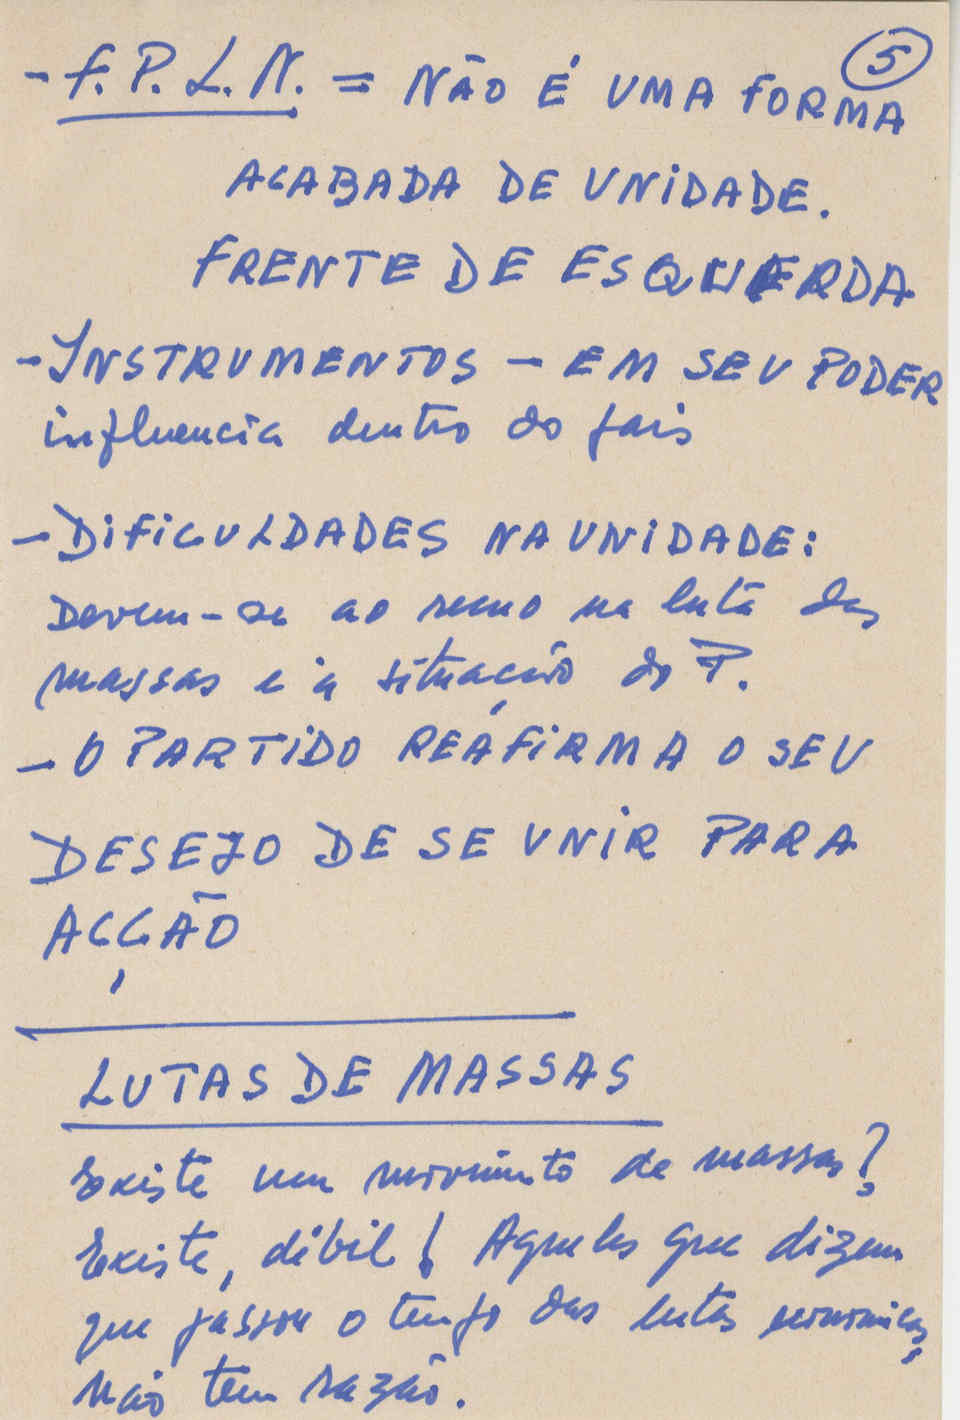 5
- F.P.L.N. = NÃO É UMA FORMA
ACABADA DE UNIDADE.
FRENTE DE ESQUERDA
- INSTRUMENTOS - EM SEU PODER
influencia dentro do pais
- DIFICULDADES NA UNIDADE:
Devem-se ao na luta das
massas e à situação do P.
- O PARTIDO REAFIRMA O SEU
DESEJO DE SE UNIR PARA
ACÇÃO
LUTAS DE MASSAS
Existe um movimento de massas?
Existe, débil! Aqueles que dizem
que passou o tempo das lutas economicas,
não tem razão.